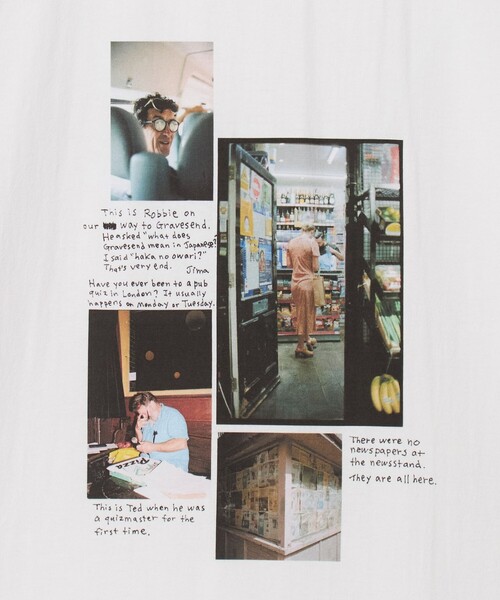 This is Robbie on
our way to Gravesend.
He asked "what does
Gravesend mean in Japanese?"
I said "haka no owari?"
That's very end. Jima
Have you ever been to a pub
quiz in London? It usually
happens on Monday or Tuesday.
PIZZA
This is Ted when he was
a quizmaster for the
first time.
There were no
newspapers at
the newsstand.
They are all here.